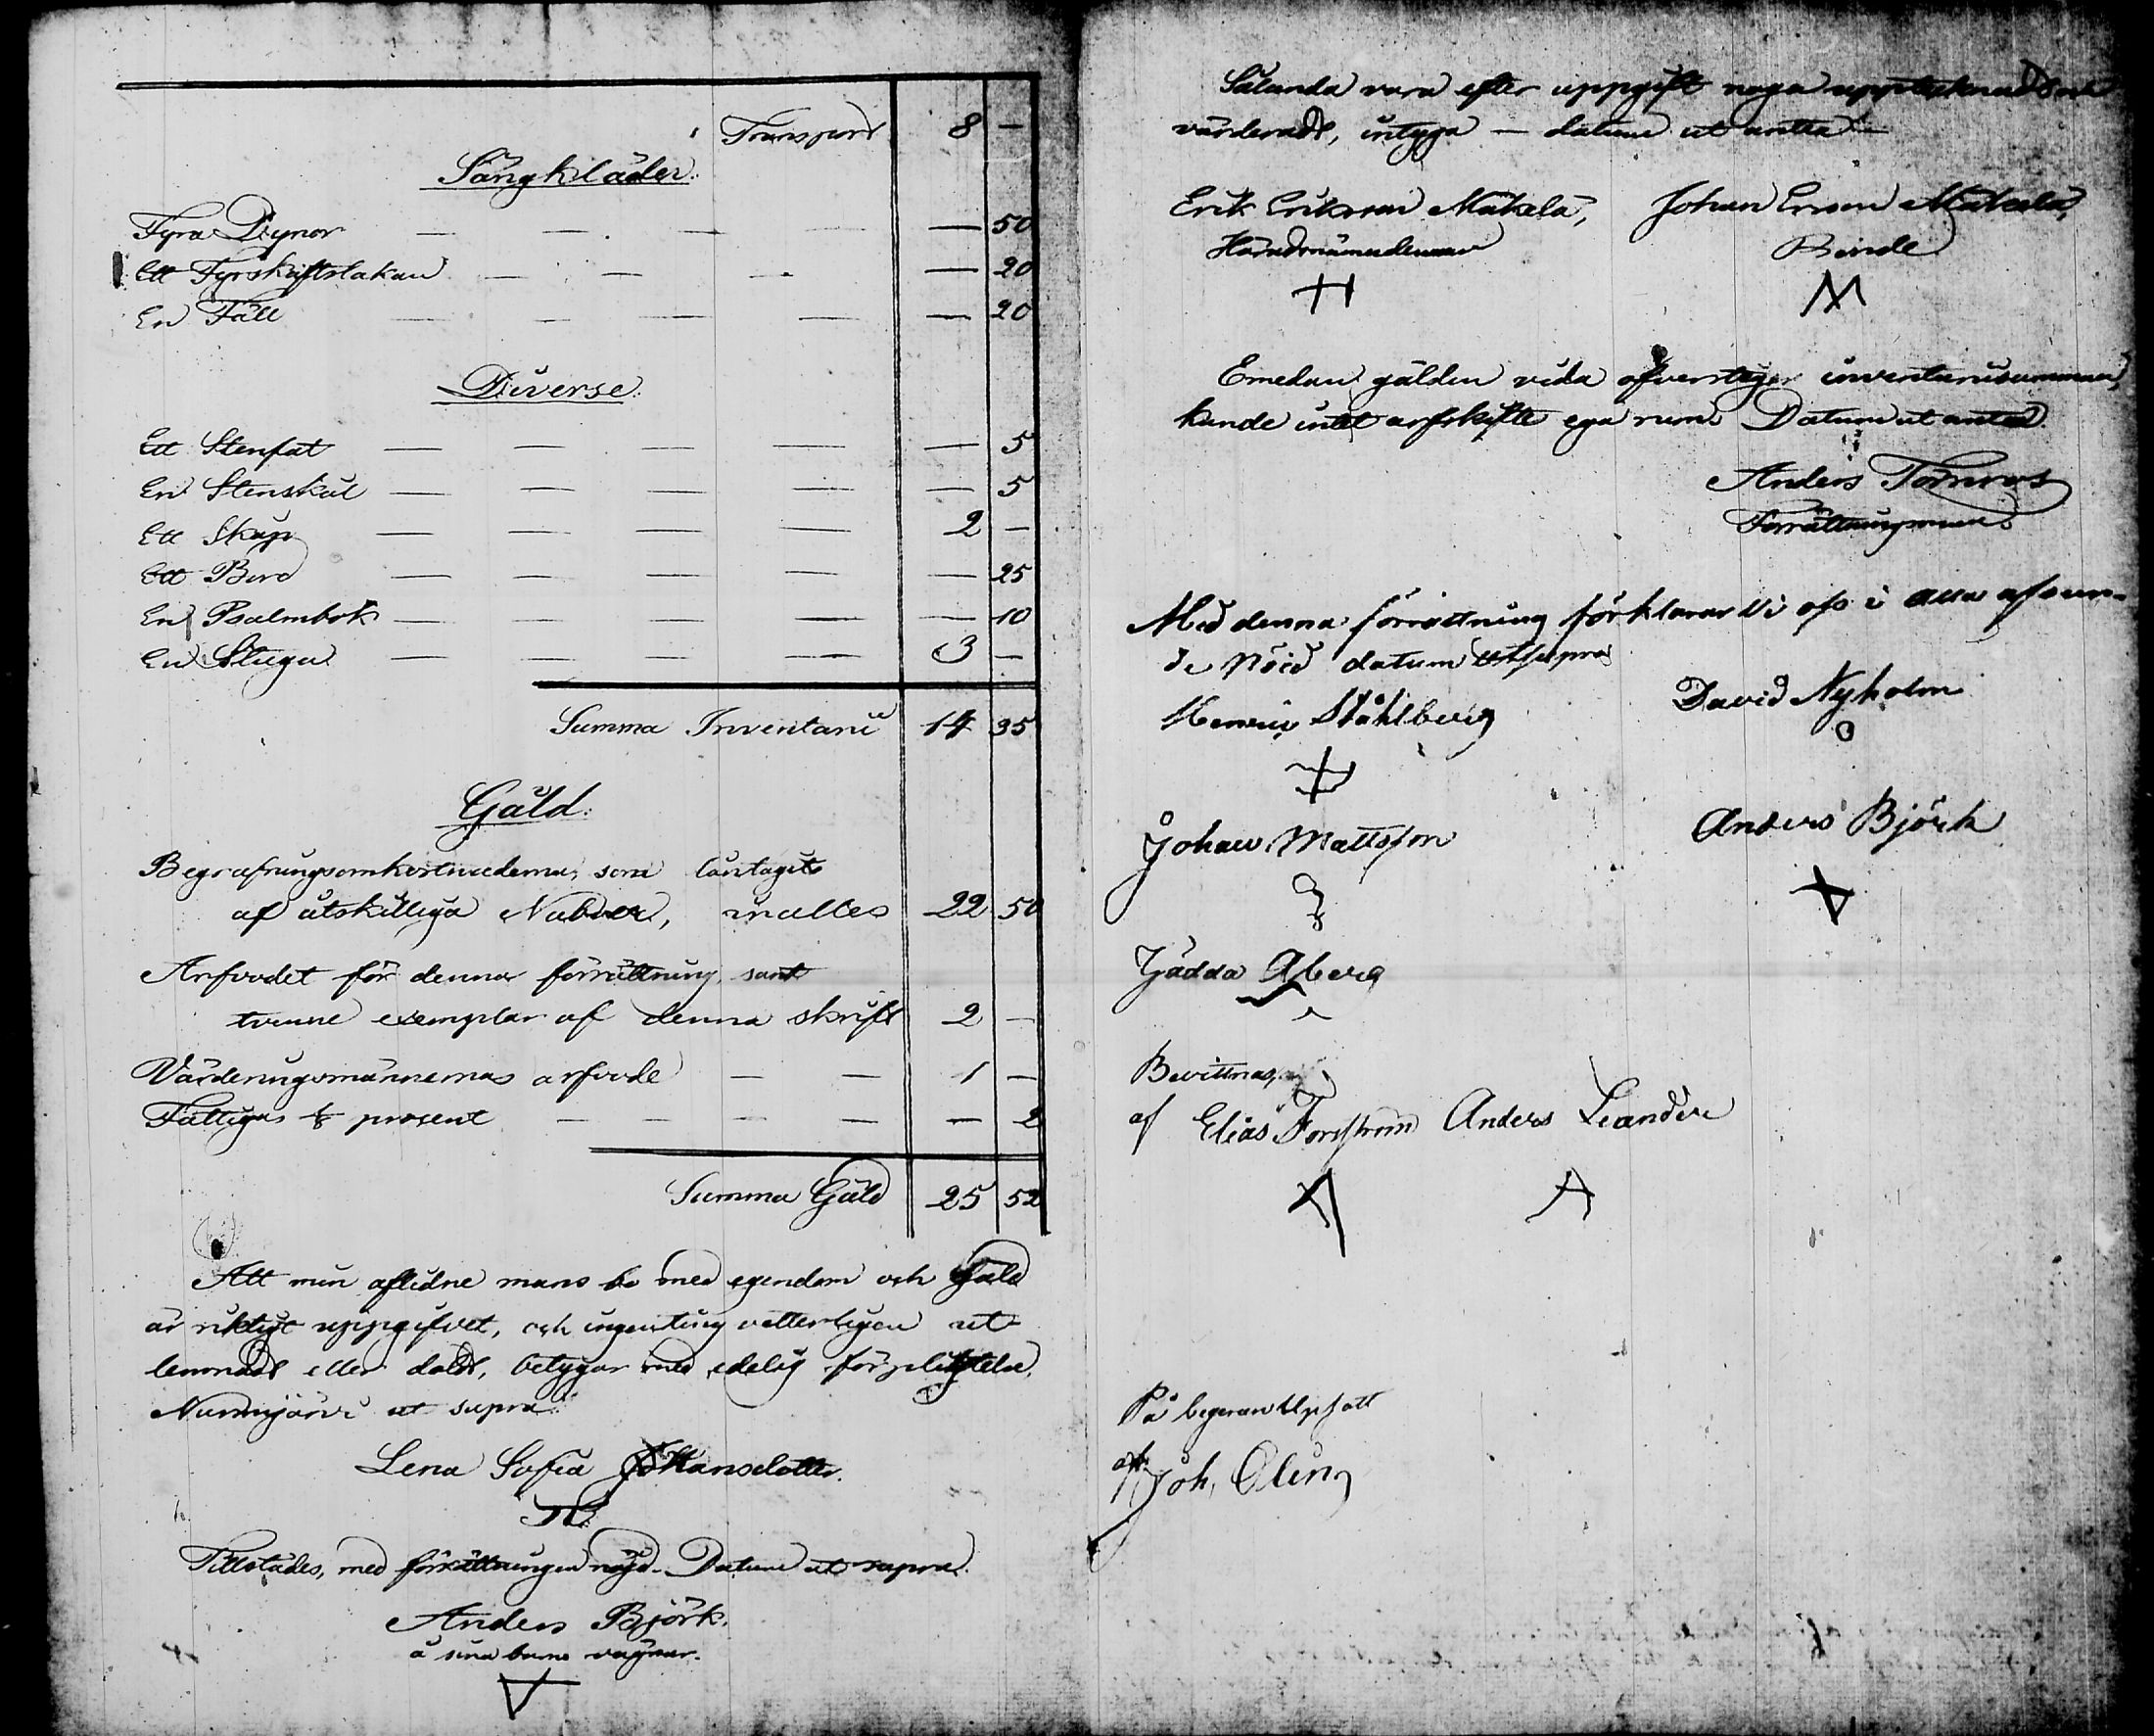 Transport 8 —
Sängkläder:
Fyra Dynor — — — — — 50
Ett Fyrskiftslakan — — — — 20
En Fäll — — — — — 20
Diverse:
Ett Stenfat — — — — — 5
En Stenskål — — — — — 5
Ett Skåp — — — — 2 —
Ett Bord — — — — — 25
En Psalmbok — — — — — 10
En Stuga — — — — 3 —
Summa Inventarii 14 35
Gäld:
Begrafningsomkostnaderna, som låntagits
af åtskilliga , inalles 22 50
Arfvodet för denna förrättning, samt
tvenne exemplar af denna skrift 2 —
Värderingsmännernas arfvode — — 1 —
Fattigas 1/8 procent — — — — — 2
Summa Gäld 25 52
Att min aflidne mans bo med egendom och gäld
är riktigt uppgifvet, och ingenting vetterligen ut-
lemnadt eller doldt, betygar med edelig förpliktelse.
Nurmijärvi ut supra.
Lena Sofia Johansdotter.
Tillstädes, med förrättningen nöjd. Datum ut supra.
Anders Björk.
å sina barns vägnar.
Sålunda vara efter uppgift noga upptecknadt och
värderadt, intyga — datum ut antea.
Erik Eriksson Mäkelä, Johan Ersson Mäkelä,
Häradsnämndeman Bonde
Emedan gälden vida öfverstiger inventariisumman,
kunde intet arfskifte ega rum. Datum ut antea.
Anders Törnroos
Förrättningsman
Med denna förrättning förklarar Vi oss i alla afseen-
de Nöid datum ut supra
Henric Ståhlberg David Nyholm
Johan Mattsson Anders Björk
Jädda Åberg
Bevittnas,
af Elias Forsström Anders Leander
På begeran Upsatt
af Joh. Olin